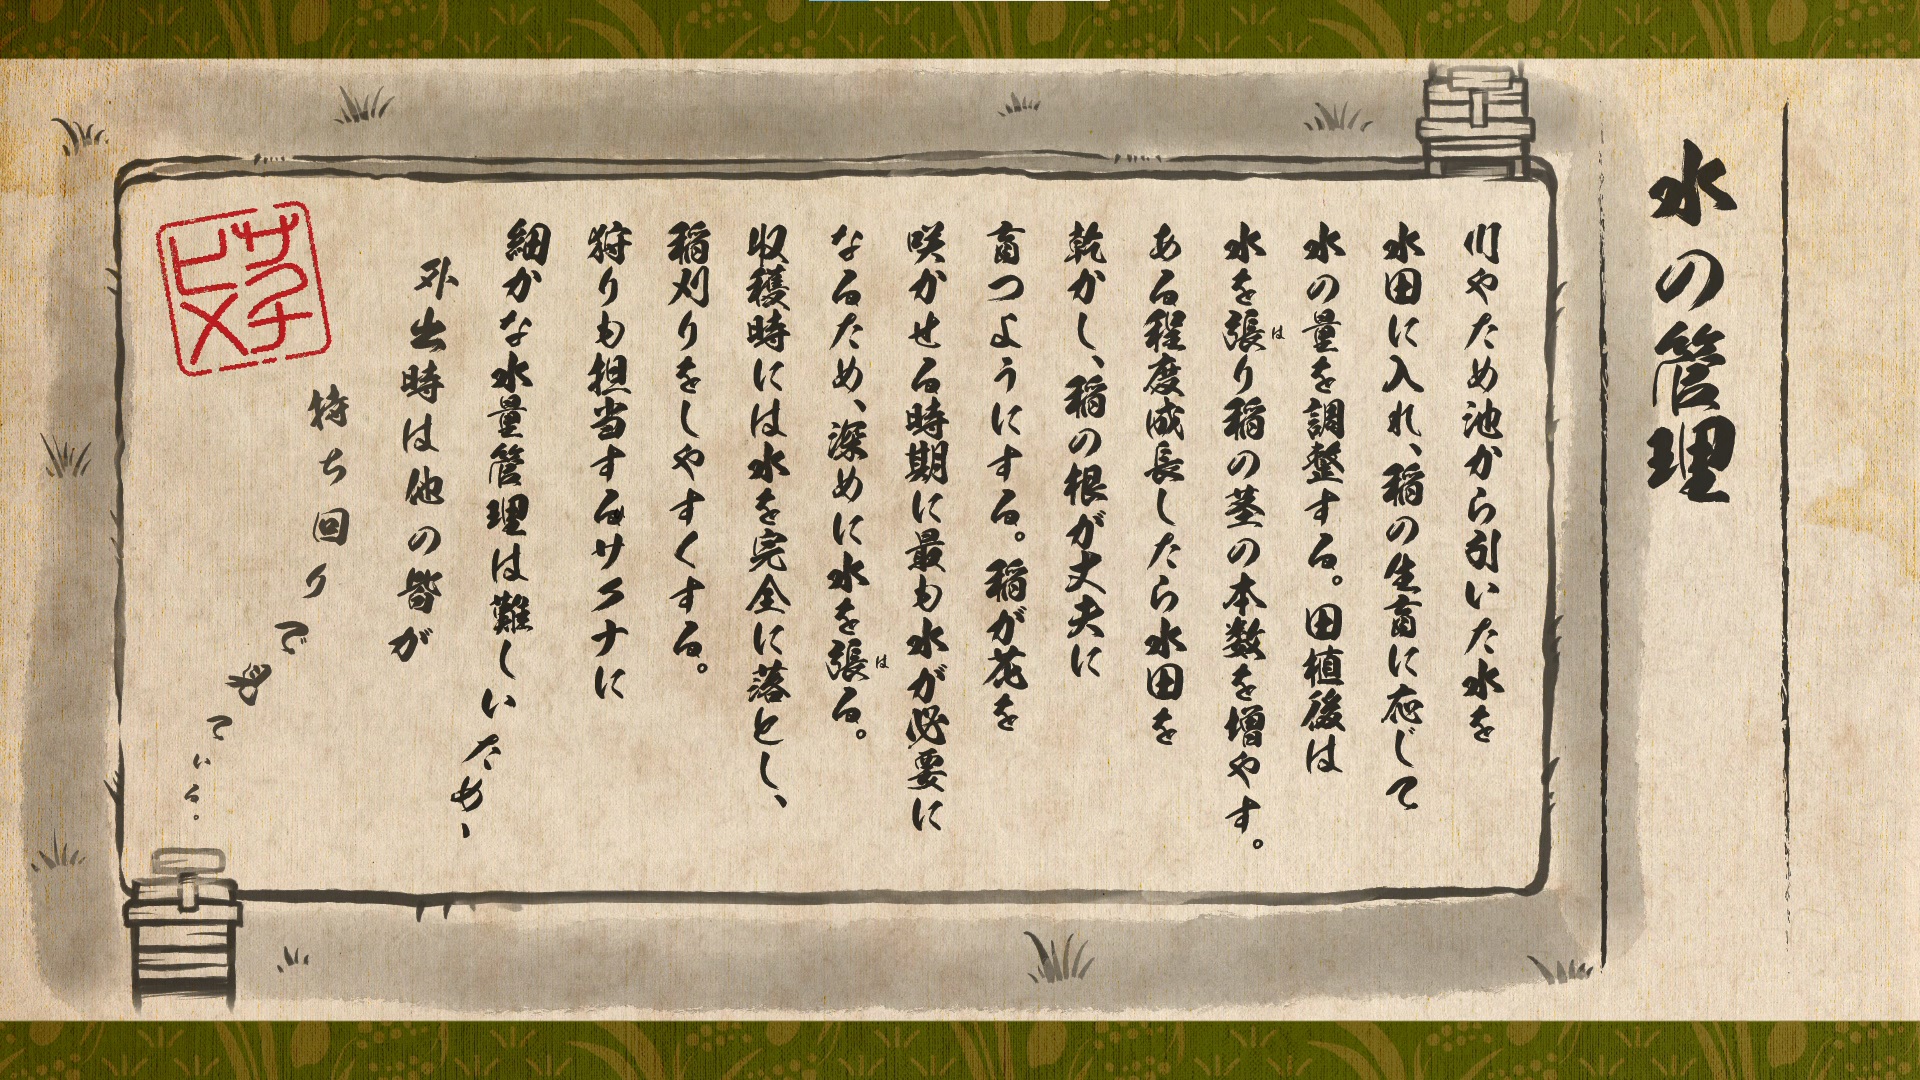 水の管理
川やため池から引いた水を
水田に入れ、稲の生育に応じて
水の量を調整する。田植後は
水を張り稲の茎の本数を増やす。
は
ある程度成長したら水田を
乾かし、稲の根が丈夫に
育つようにする。稲が花を
咲かせる時期に最も水が必要に
なるため、深めに水を張る。
は
収穫時には水を完全に落とし、
稲刈りをしやすくする。
狩りも担当するサクナに
細かな水量管理は難しいため、
外出時は他の皆が
持ち回りで見ている。
サクナヒメ